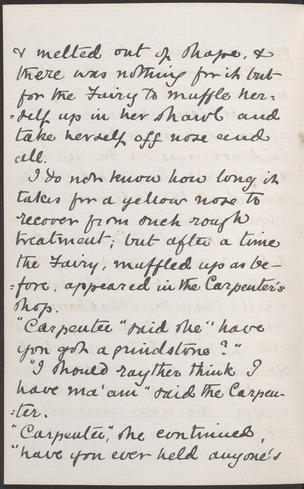 & melted out of shape, &
there was nothing for it but
for the Fairy to muffle her-
=self up in her shawl and
take herself off nose and
all.
I do not know how long it
takes for a yellow nose to
recover from such rough
treatment; but after a time
the Fairy, muffled up as be-
=fore, appeared in the Carpenter's
shop.
"Carpenter" said she "have
you got a grindstone?"
"I should rayther think I
have ma'am" said the Carpen-
=ter.
"Carpenter", she continued,
"have you ever held anyone's